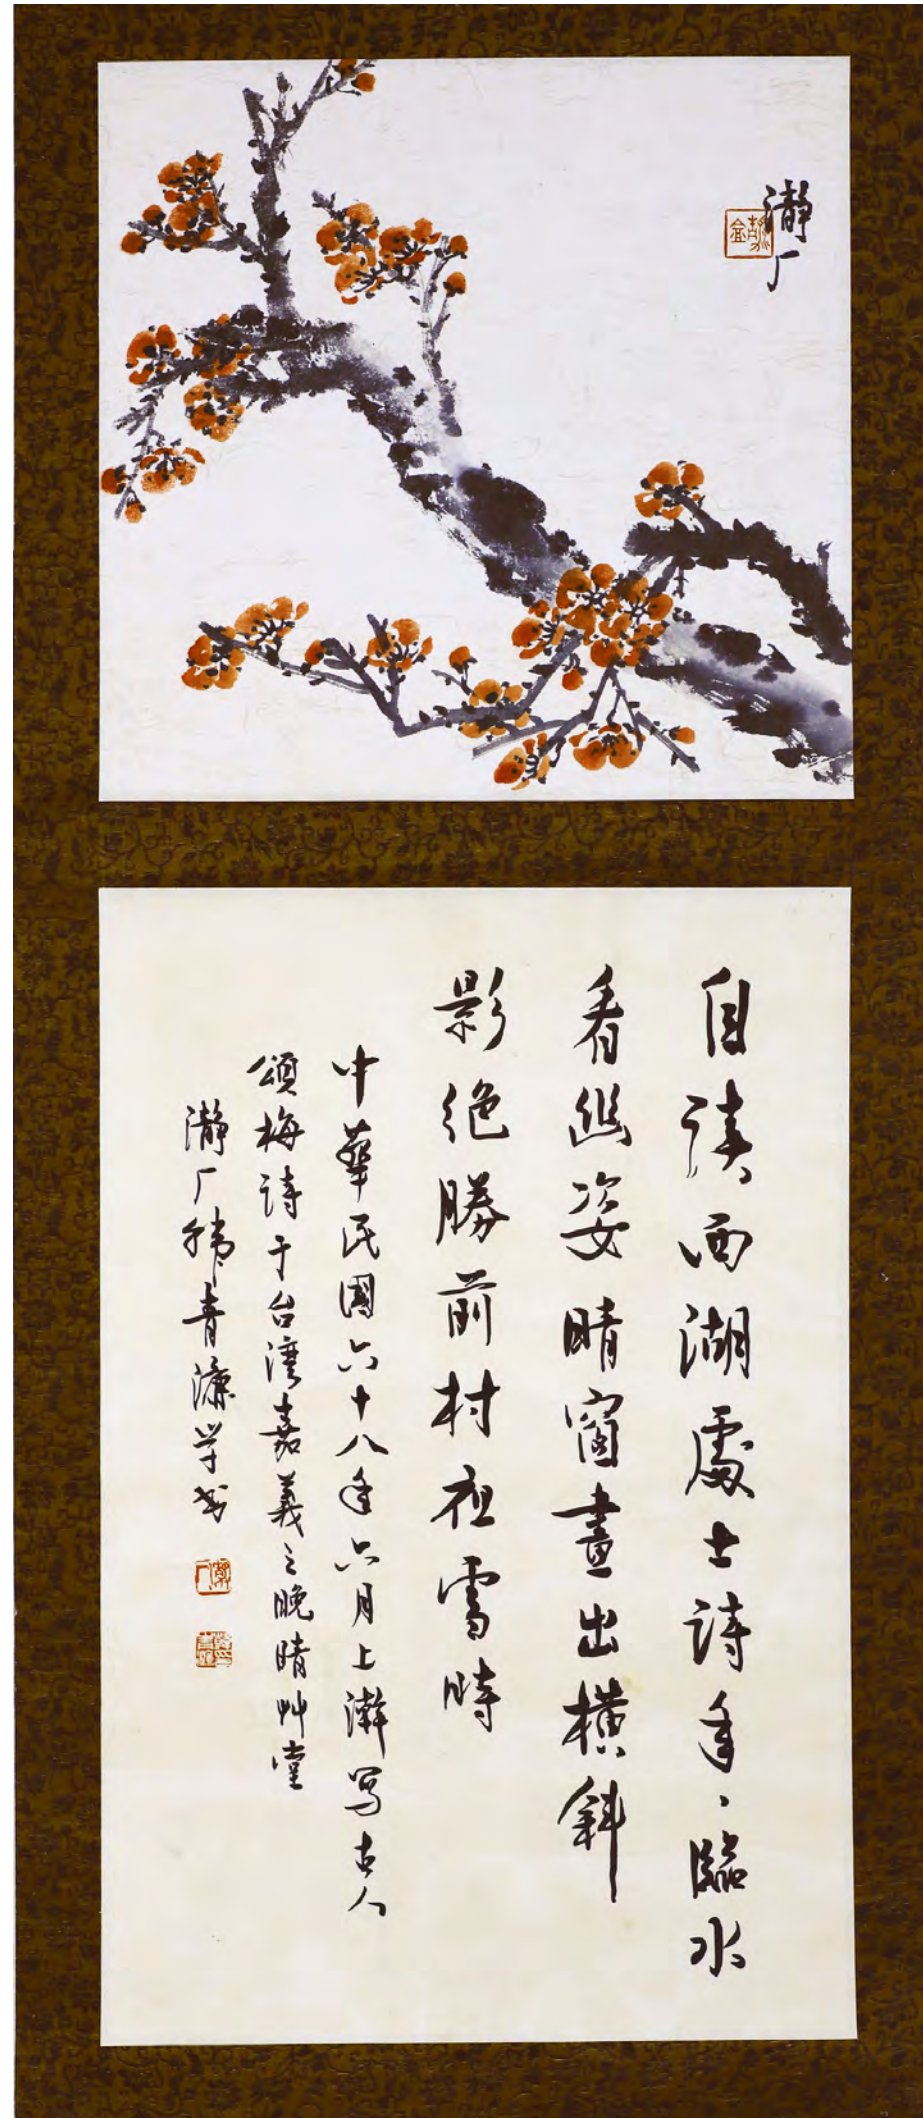 瀞厂
自讀西湖處士詩年、臨水
看幽姿晴窗畫出橫斜
影絕勝前村夜雪時
中華民國六十八年六月上澣寫古人
頌梅詩于台灣嘉義之晚晴艸堂
瀞厂韓青濂学书